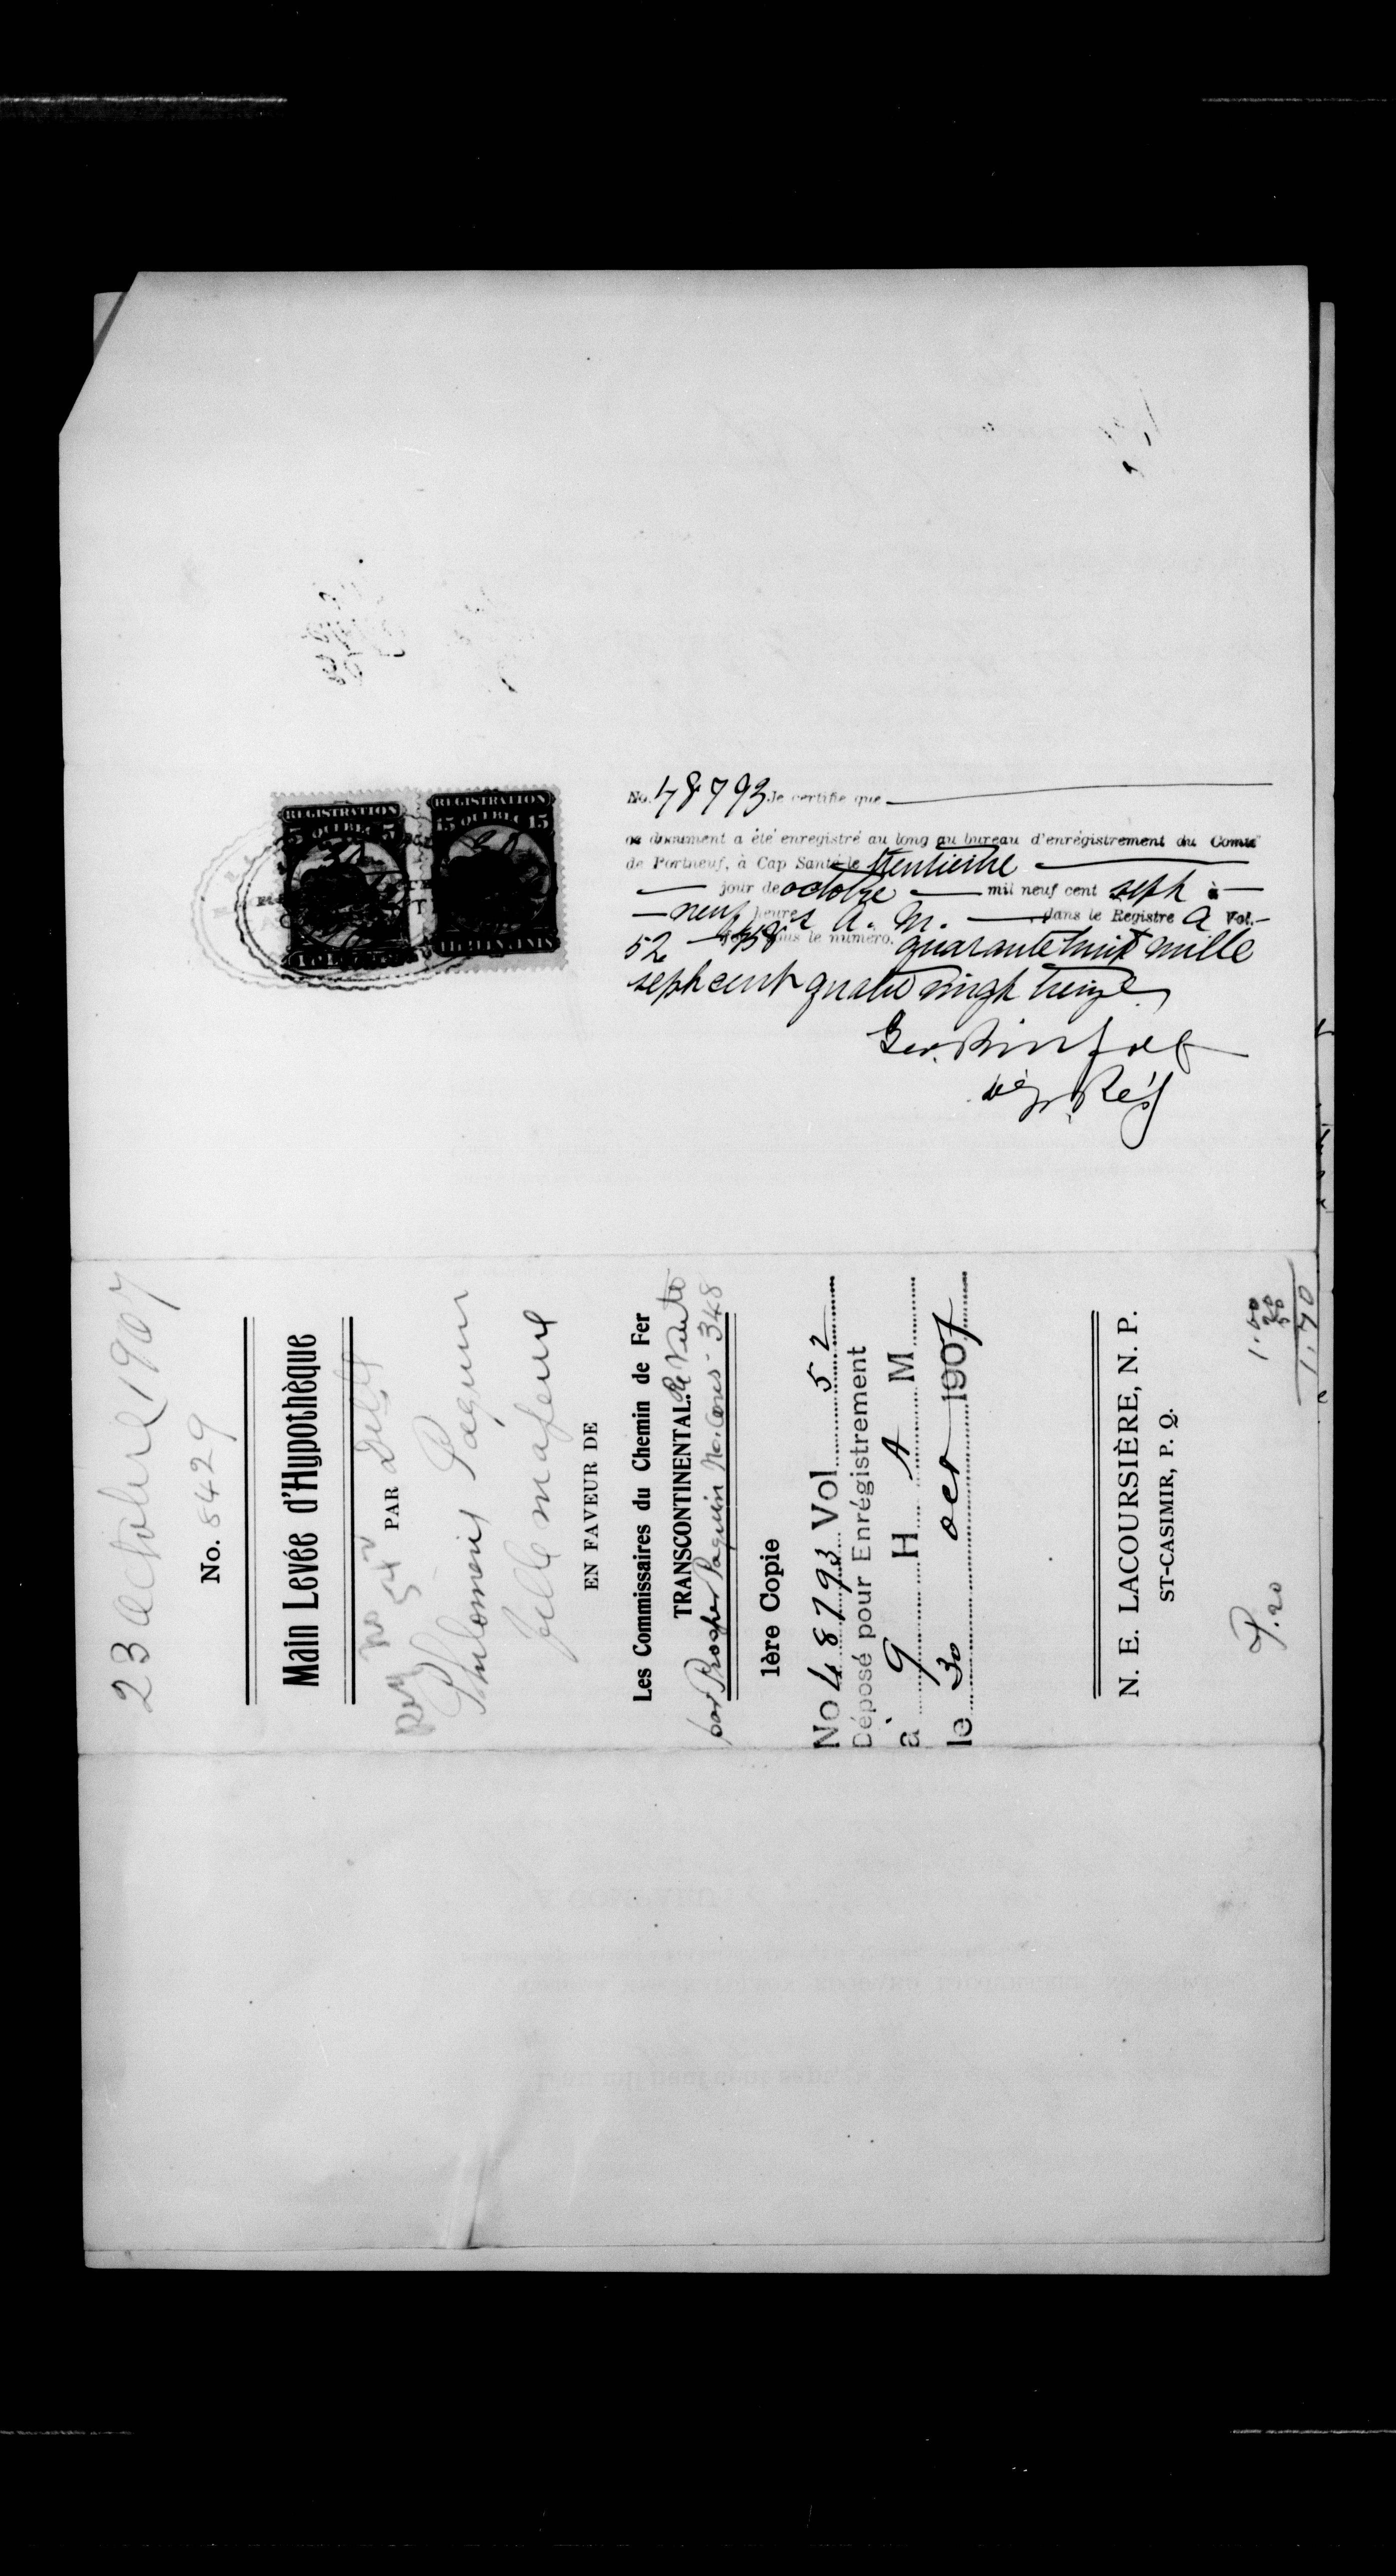 REGISTRATION
5 QUEBEC 5
REGISTRATION
15 QUEBEC 15
FIFTEEN CENTS
No. 48793 Je certifie que
ce document a été enregistré au long au bureau d'enrégistrement du Comté
de Portneuf, à Cap Santé le trentieme
jour de octobre mil neuf cent sept à
neuf heures A. M. dans le Registre A Vol.
52 sous le numéro. quarante huit mille
sept cent quatre vingt treize
Dép. Rég
23 Octobre 1907
No. 8429
Main Levée d'Hypothèque
PAR Delle
Philomene Paquin
fille majeure
EN FAVEUR DE
Les Commissaires du Chemin de Fer
TRANSCONTINENTAL. Re Vente
par Prosper Paquin No. Cons - 348
1ère Copie
No 48793 Vol 52
Déposé pour Enrégistrement
à 9 H A M
le 30 oct 1907
N. E. LACOURSIÈRE, N. P.
ST-CASIMIR, P. Q.
P. 20
1.00
20
50
1.70